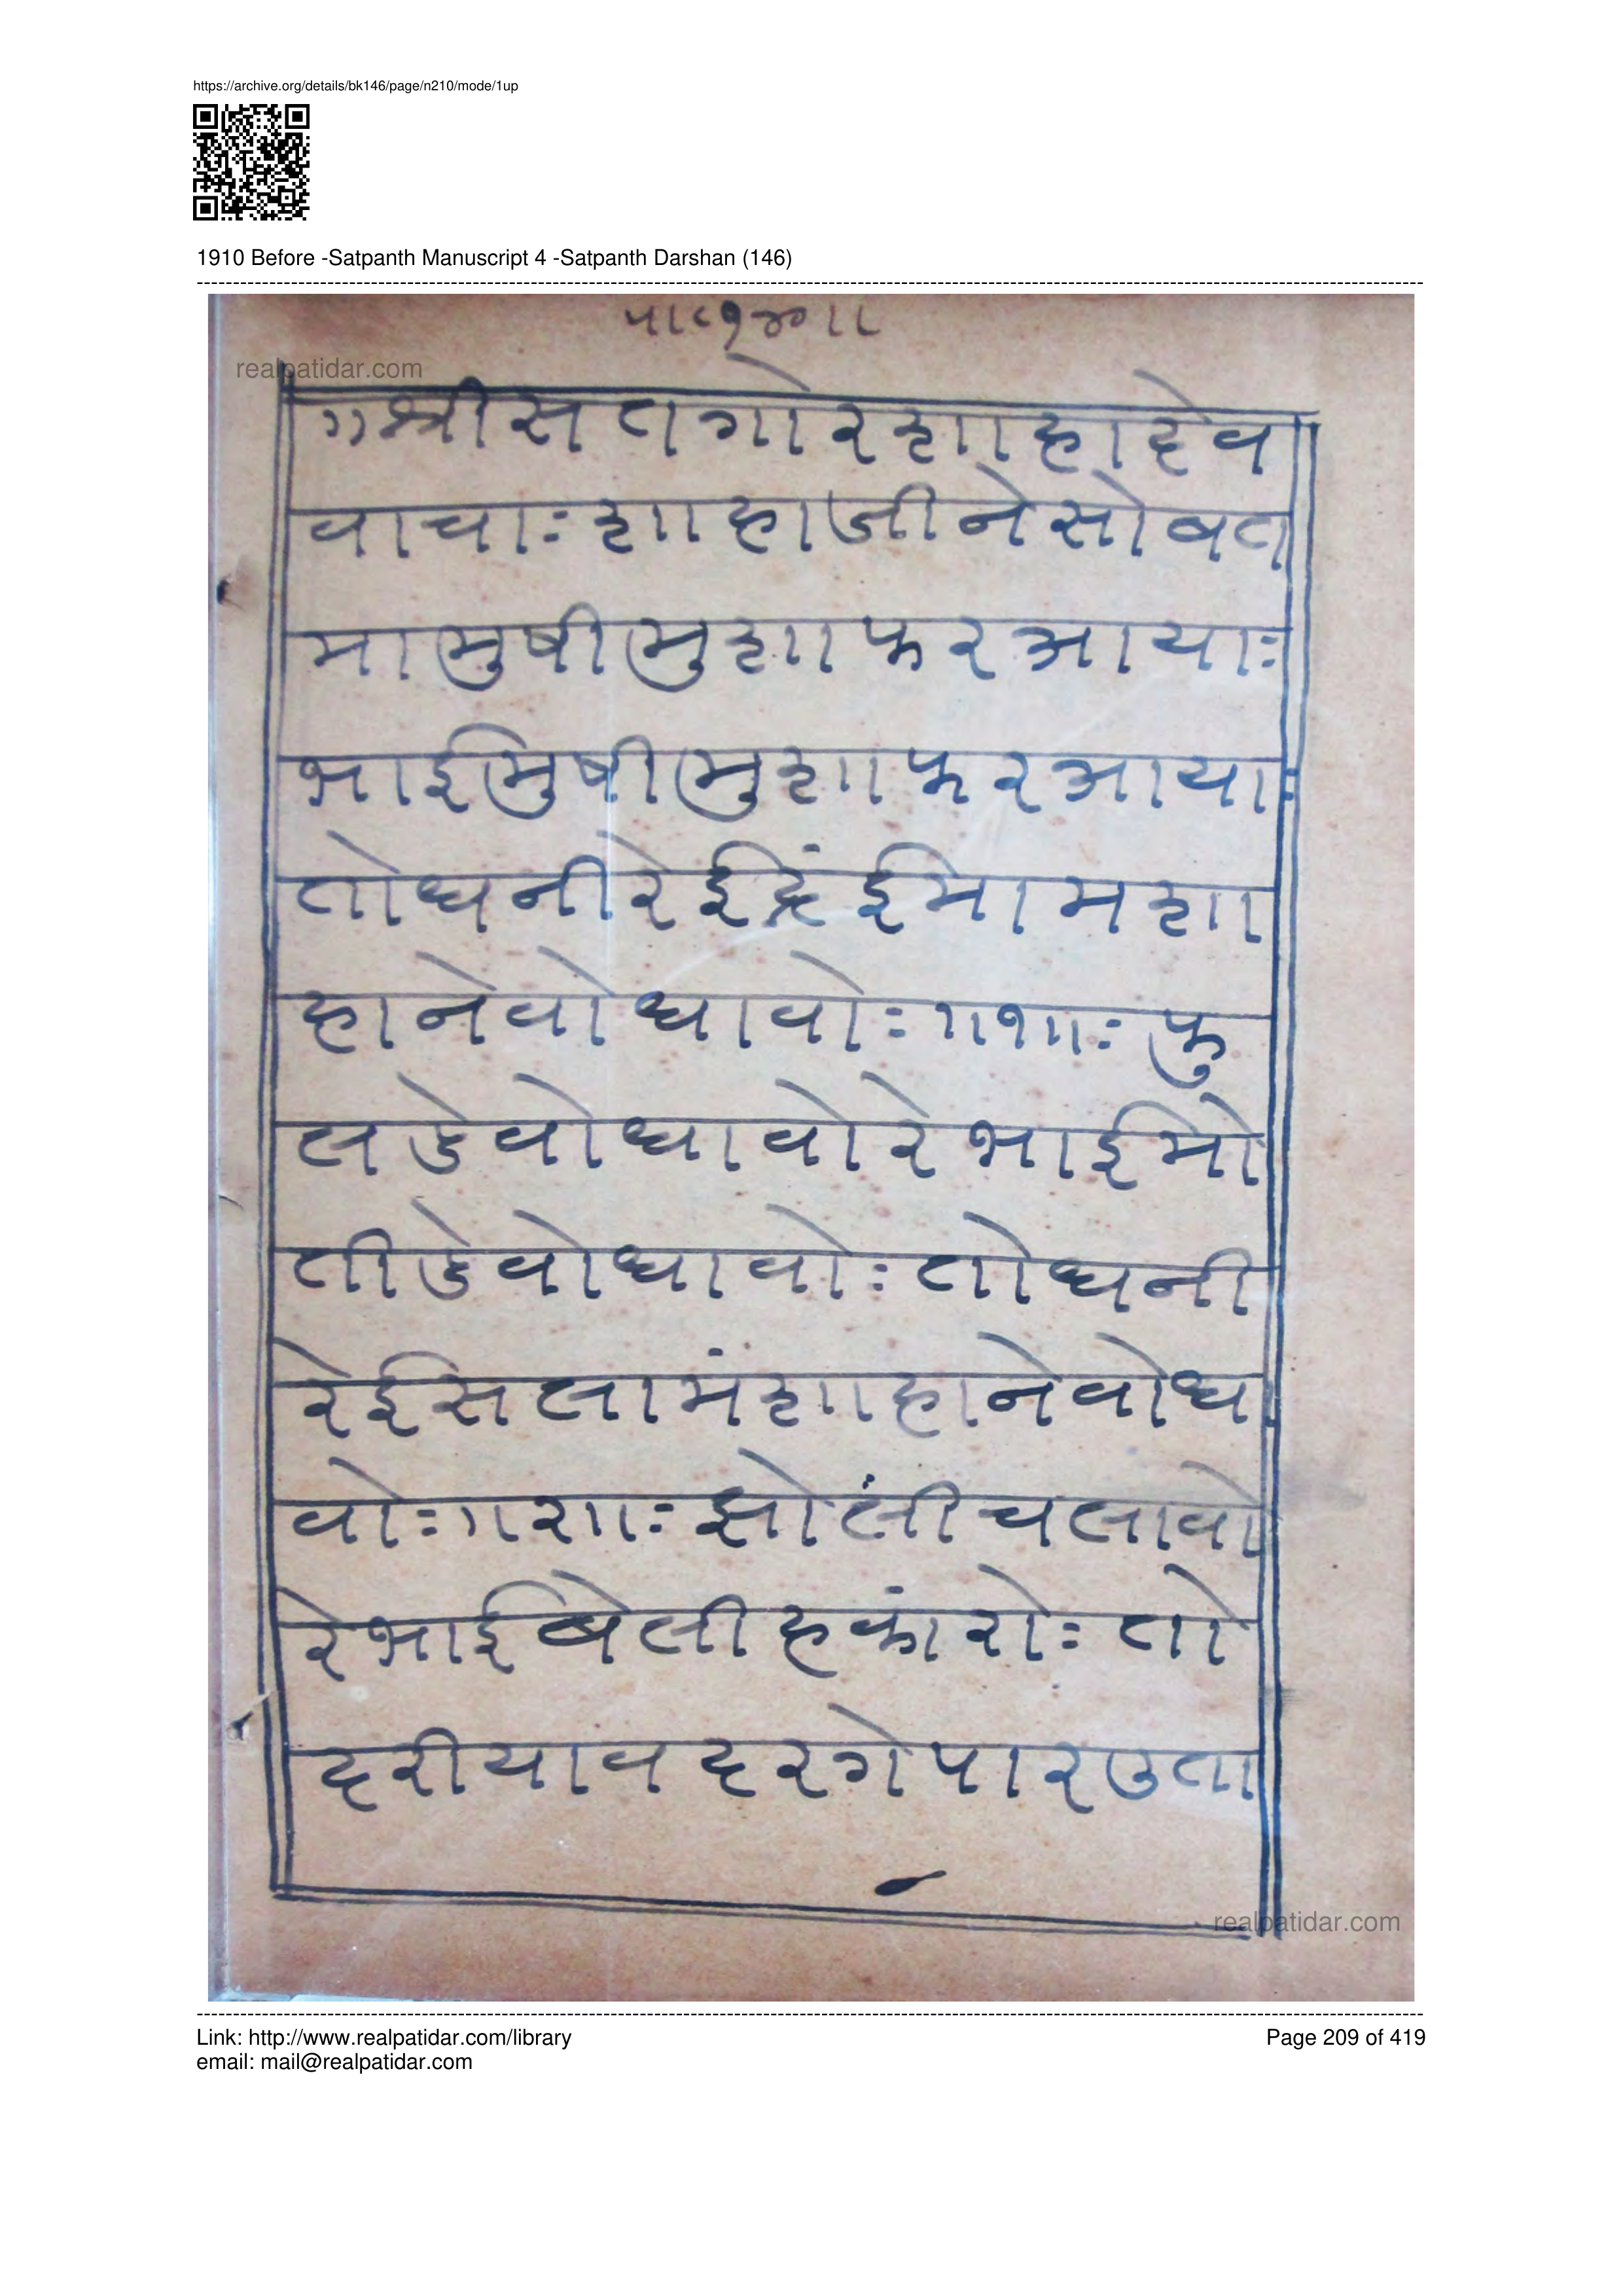 https://archive.org/details/bk146/page/n210/mode/1up
1910 Before -Satpanth Manuscript 4 -Satpanth Darshan (146)
realpatidar.com
॥श्रीसतगोरशाहादेव
वाचाः शाहाजीनेसोबत
मामुषीमुशाफरआयाः
भाईमुषीमुशाफरआयाः
तोधनीरेईद्रंईमामशा
हानेवोधावोः॥१॥ः फु
लडेवोधावोरेभाईमो
तीडेवोधावोः तोधनी
रेईसलामंशाहानेवोधा
वोः॥२॥ः झोलींचलावो
रेभाईबेलीहकांरोः तो
दरीयावदरगेपारउता
realpatidar.com
Link: http://www.realpatidar.com/library
Page 209 of 419
email: mail@realpatidar.com